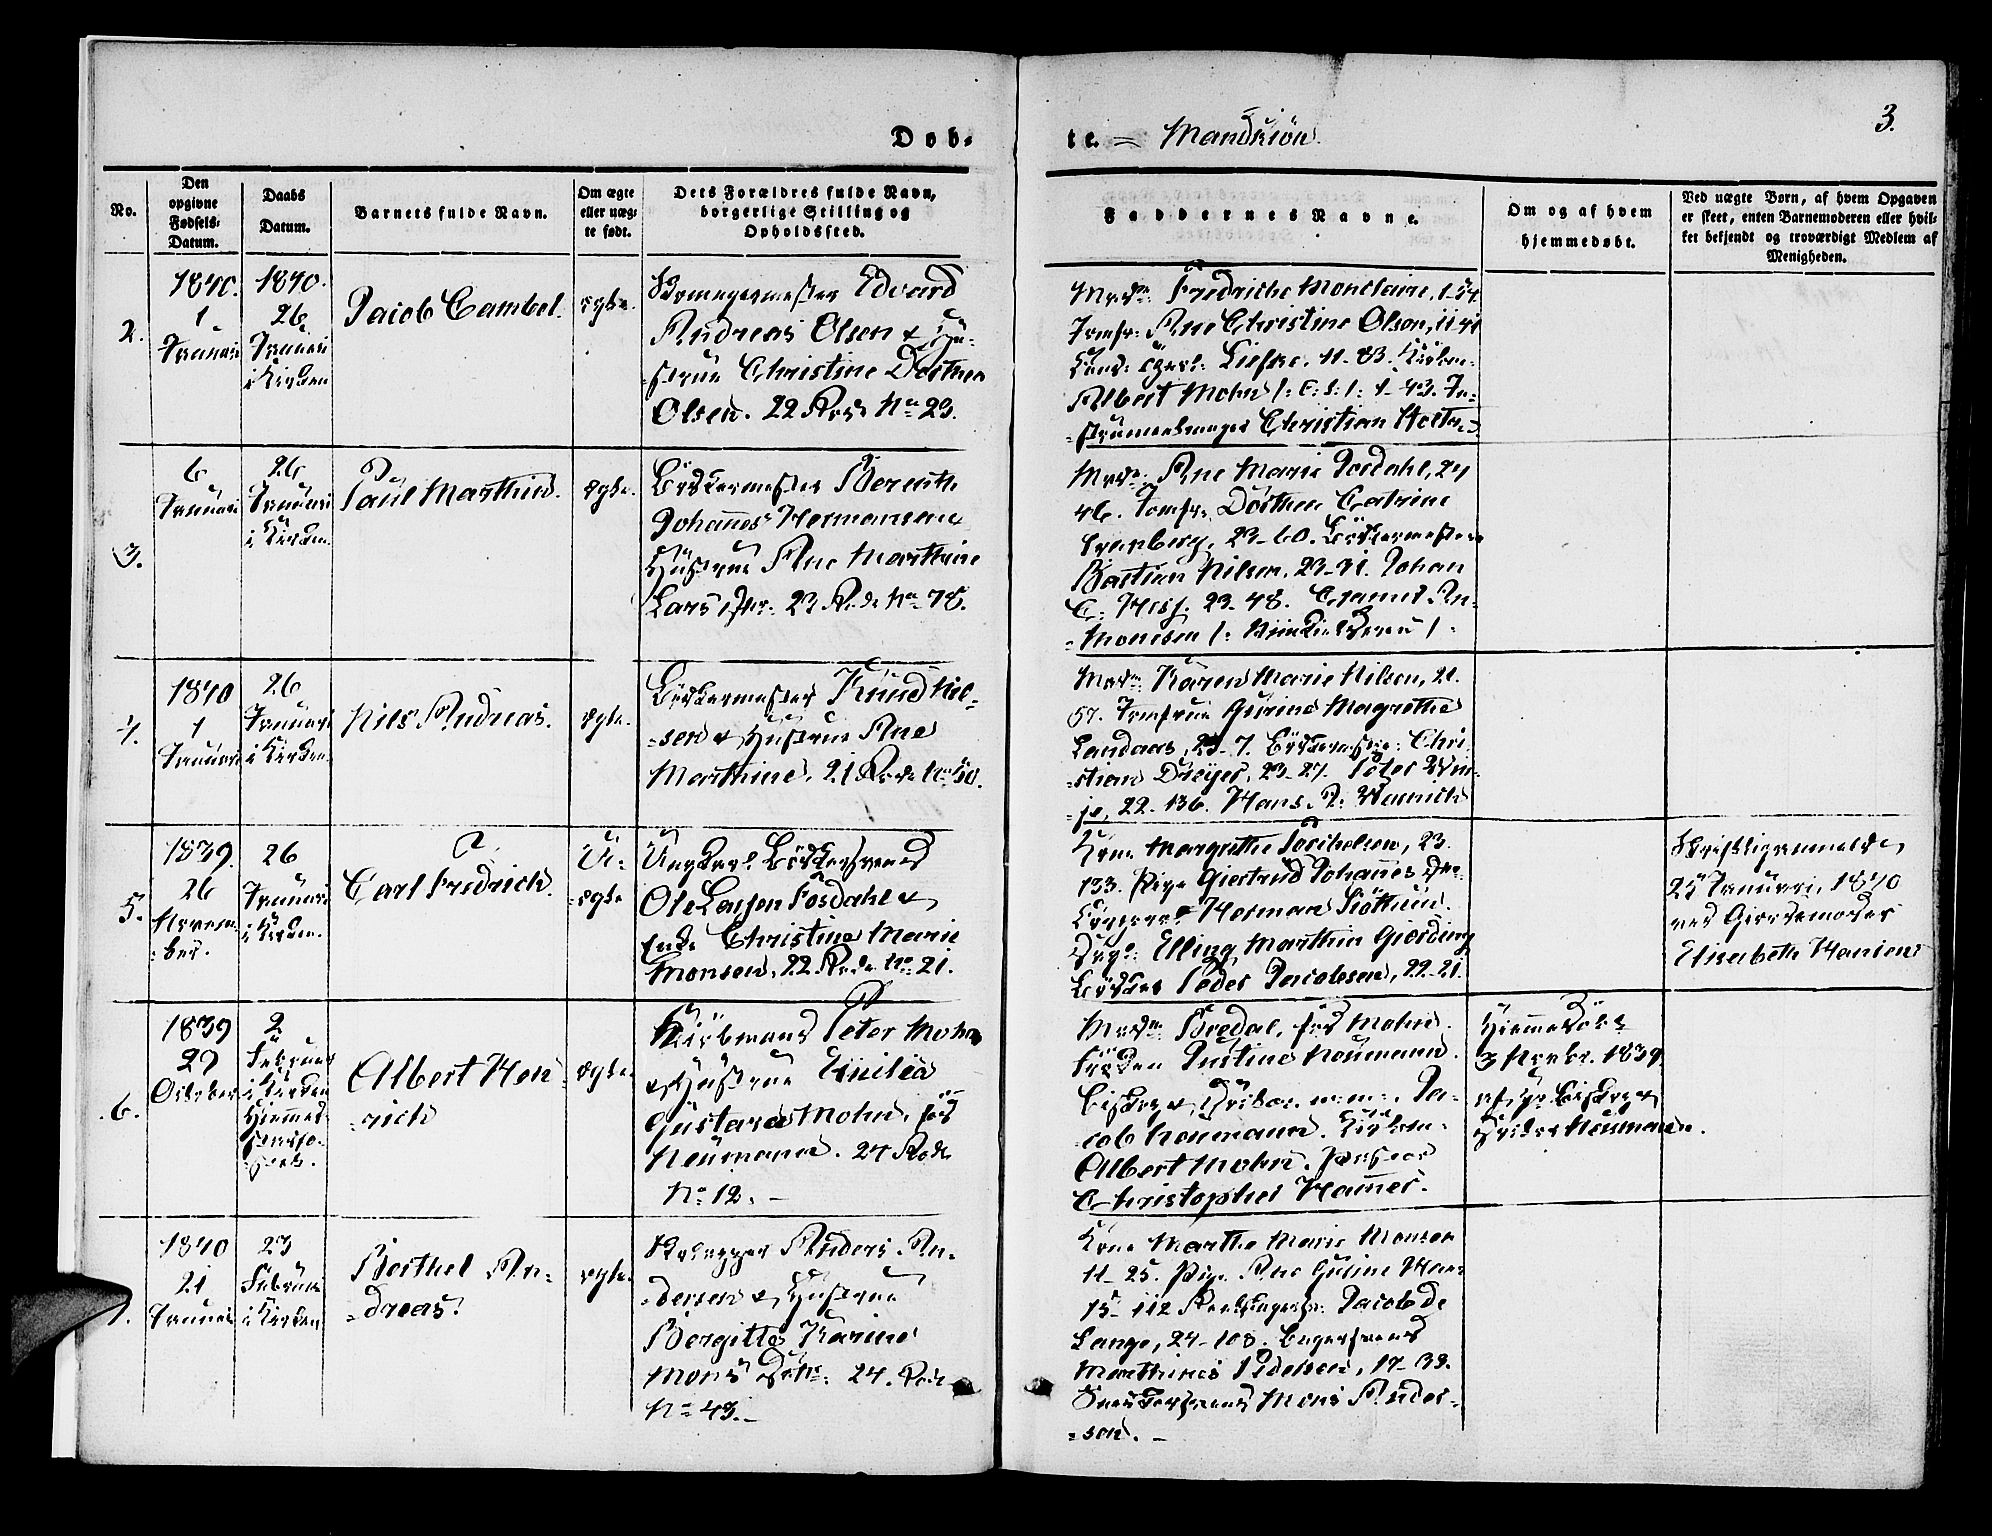 3.
Døb-
te. = Mandkiøn.
No.
Den
opgivne
Fødsels-
Datum.
Daabs
Datum.
Barnets fulde Navn.
Om ægte
eller uæg-
te født.
Dets Forældres fulde Navn,
borgerlige Stilling og
Opholdssted.
Faddernes Navne.
Om og af hvem
hjemmedøbt.
Ved uægte Børn, af hvem Opgaven
er skeet, enten Barnemoderen eller hvil-
ket bekjendt og troværdigt Medlem af
Menigheden.
2.
1840.
1
Januari
1840.
26
Januari
i Kirken
Jacob Cambel.
egte.
Edvard
Andreas Olsen & Hu-
strue Christine Dorthea
Olsen. 22 Rode No 23.
Mad: Fredriche Monclaire, 1-54.
Jomfr: Ane Christine Olson, 11-41
Albert Mohn /: C: S: /: 1-43. In-
-strumentmager Christian Holtz
3.
6
Januari
26
Januari
i Kirken
Paul Marthin.
egte.
Bødkermester Berenth
Johannes Hermansen &
Hustrue Ane Marthine
Lars dtr: 23 Rode No 78.
Mad: Ane Marie Fosdahl, 24
46. Jomfr: Dorthea Catrine
23-60. Bødkermester
Bastian Nilsen, 23-31. Johan
C: Hess. 23-48.
-monisen
4.
1840
1
Januari
26
Januari
i Kirken
Nils Andreas.
egte.
Bødkermester Knud Nil-
-sen & Hustrue Ane
Marthine, 21 Rode No 50.
Mad: Karen Marie Nilsen, 21.
57. Jomfrue Gurine Magrethe
Landaas, 23-7. Bødkermester: Chri
-stian Dreyer, 23-27. Peter
22-136. Hans
5.
1839.
26
Novem-
-ber.
26
Januari
i Kirken.
Carl Fredrich.
U-
-egte
Ungkarl Bødkersvend
Ole Larsen Fosdahl &
Enke Christine Marie
Monsen, 22 Rode No 21.
Kone Margrethe 23.
133. Pige Giertrud Johannes Dtr.
Herman
Elling Marthin Giørding
Bødker Peder Jacobsen, 22-21.
Skriftlig anmeldt
25 Januari, 1840
ved Giordemoder
Elisabeth Hansen
6.
1839
29
October
2
Februar
i Kirken
Hiemmed:
Albert Hen
-rich
egte.
Kiøbmand Peter Mohn
& Hustrue Emilia
Gustava Mohn, fød
Neumann. 24 Rode
No 12. -
Mad: Bredal, fød Mohn.
Frøken Justine Neumann.
Biskop Ja-
cob Neumann. Kiøbm:
Albert Mohn.
Christopher Hammer.
Hiemmedøbt
3 Novbr. 1839
af Hr. Biskop
Neumann.
7.
1840
21
Januar
23
Februar
i Kirken
Berthel An-
-dreas.
egte.
Anders An-
-dersen & Hustrue
Bergitte Karine
Mons Datr: 24. Rode
No 43. -
Kone Marthe Marie Monsen
11-25. Pige Ane Guline
15-112 Jacob de
Lange, 24-108. Bagersvend
Marthinus Pedersen, 17-39.
Snedkersvend Mons Ander-
-sen. -